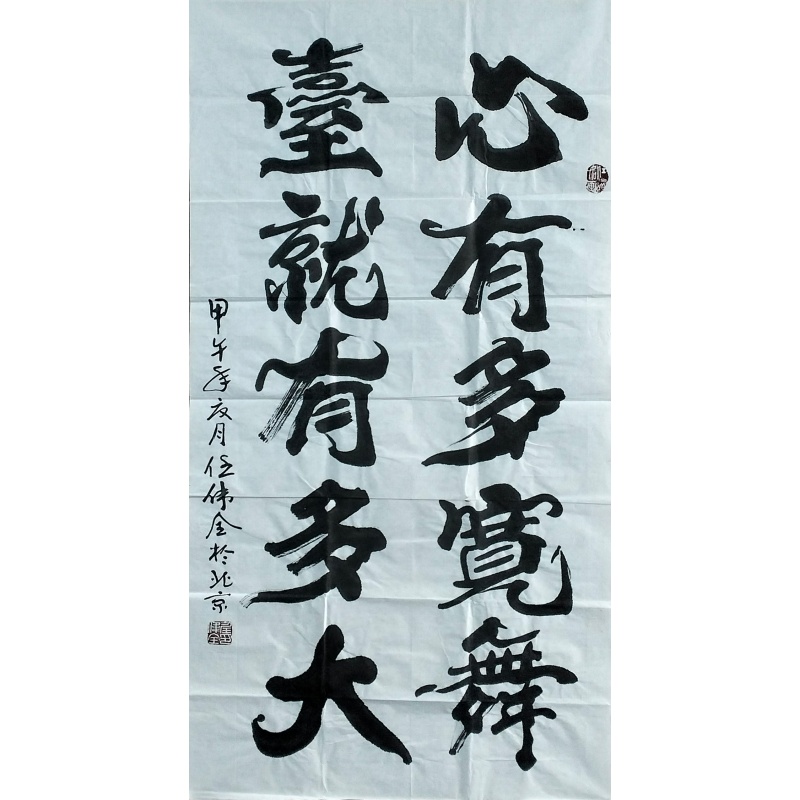 心有多寬舞
臺就有多大
甲午年夏月任伟全於北京